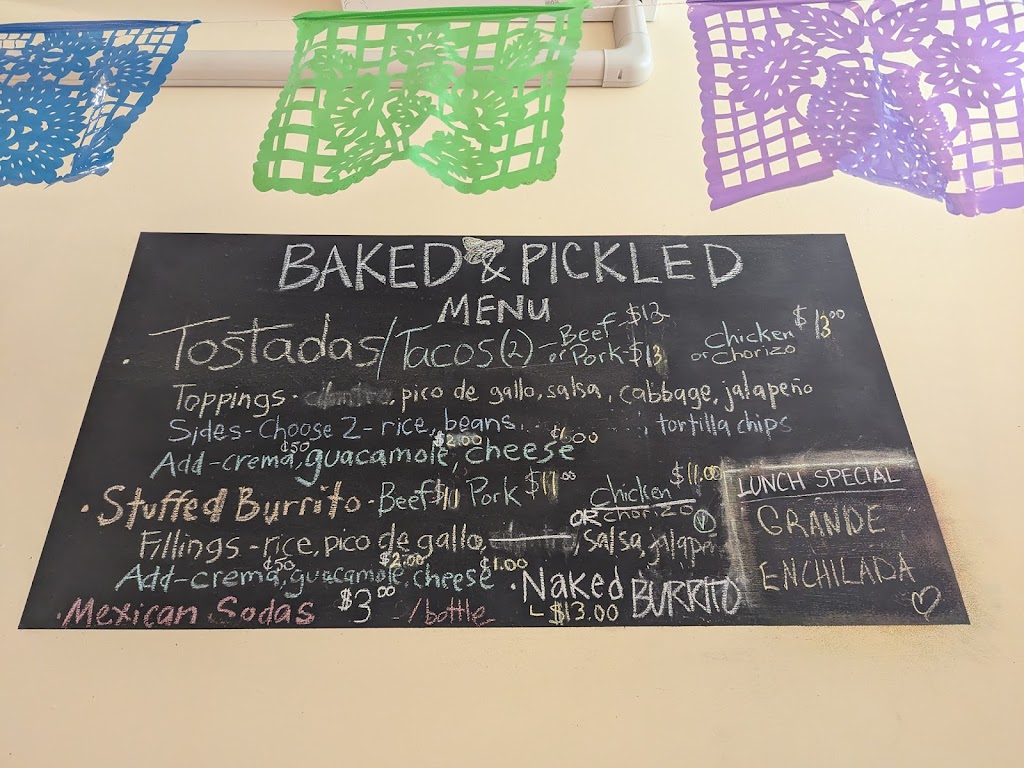 BAKED & PICKLED
MENU
· Tostadas/Tacos (2) - Beef - $12 Chicken $13.00
or Pork - $13 or Chorizo
Toppings · cilantro, pico de gallo, salsa, cabbage, jalapeño
Sides - Choose 2 - rice, beans, tortilla chips
¢50 $2.00 $1.00
Add - crema, guacamole, cheese
· Stuffed Burrito · Beef $11 Pork $11.00 Chicken $11.00
OR Chorizo V
Fillings - rice, pico de gallo, salsa, jalap
¢50 $2.00 $1.00
Add - crema, guacamole, cheese
· Mexican Sodas $3.00 /bottle
· Naked BURRITO
$13.00
LUNCH SPECIAL
GRANDE
ENCHILADA